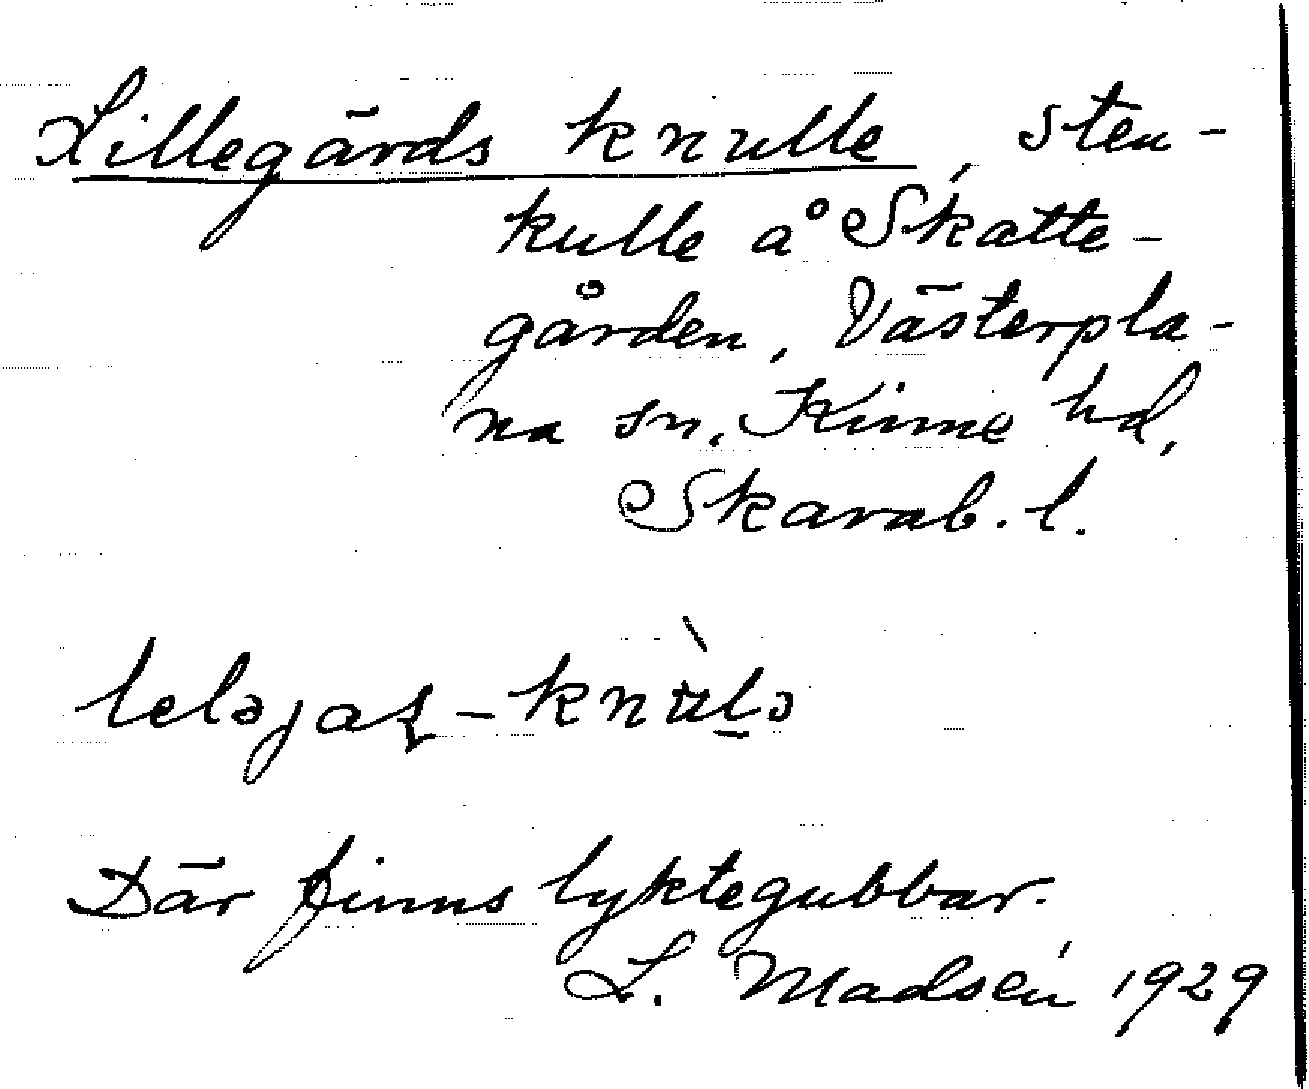 Lillegärds knulle, sten-
kulle å Skatte-
gården, Västerpla-
na sn. Kinne hd,
Skarab. l.
Där finns lyktegubbar.
L. Madsén 1929